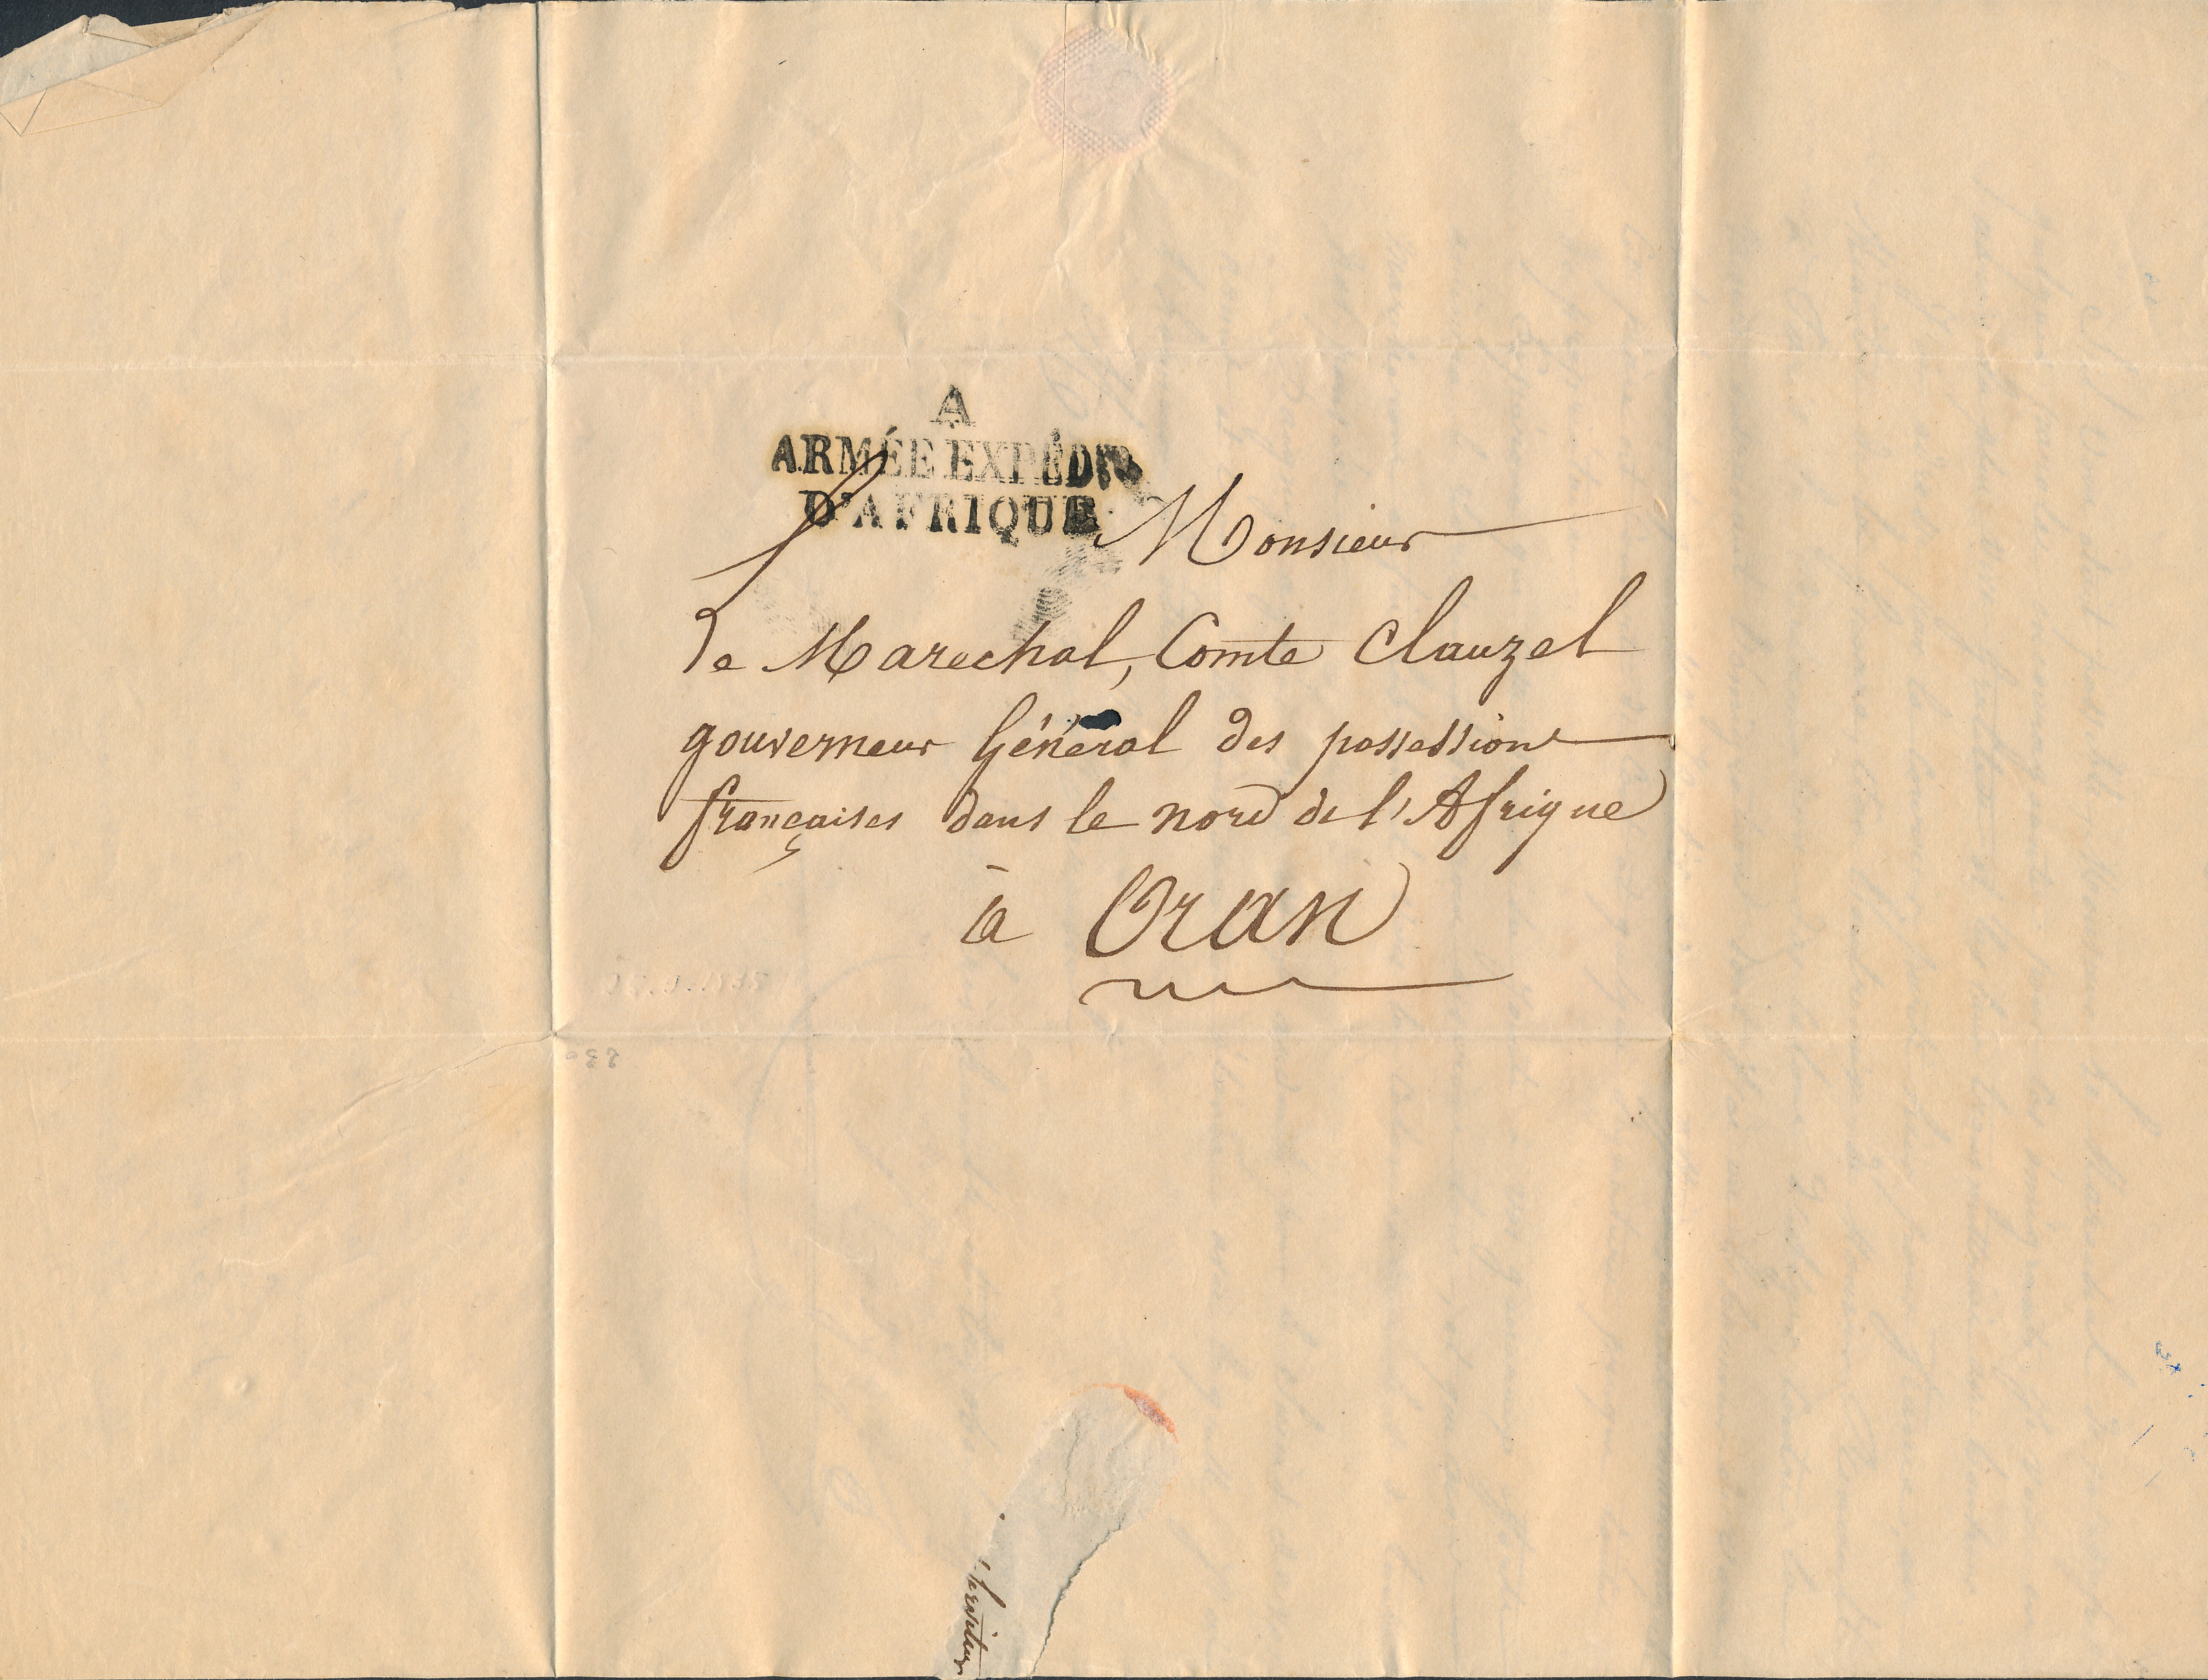 A
ARMÉE EXPÉD
D'AFRIQUE
Monsieur
le Marechal, Comte Clauzel
gouverneur Général des possessions
françaises dans le nord de l'Afrique
à Oran